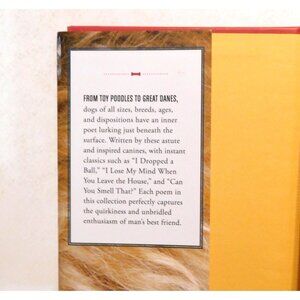 FROM TOY POODLES TO GREAT DANES,
dogs of all sizes, breeds, ages,
and dispositions have an inner
poet lurking just beneath the
surface. Written by these astute
and inspired canines, with instant
classics such as “I Dropped a
Ball,” “I Lose My Mind When
You Leave the House,” and “Can
You Smell That?” Each poem in
this collection perfectly captures
the quirkiness and unbridled
enthusiasm of man’s best friend.